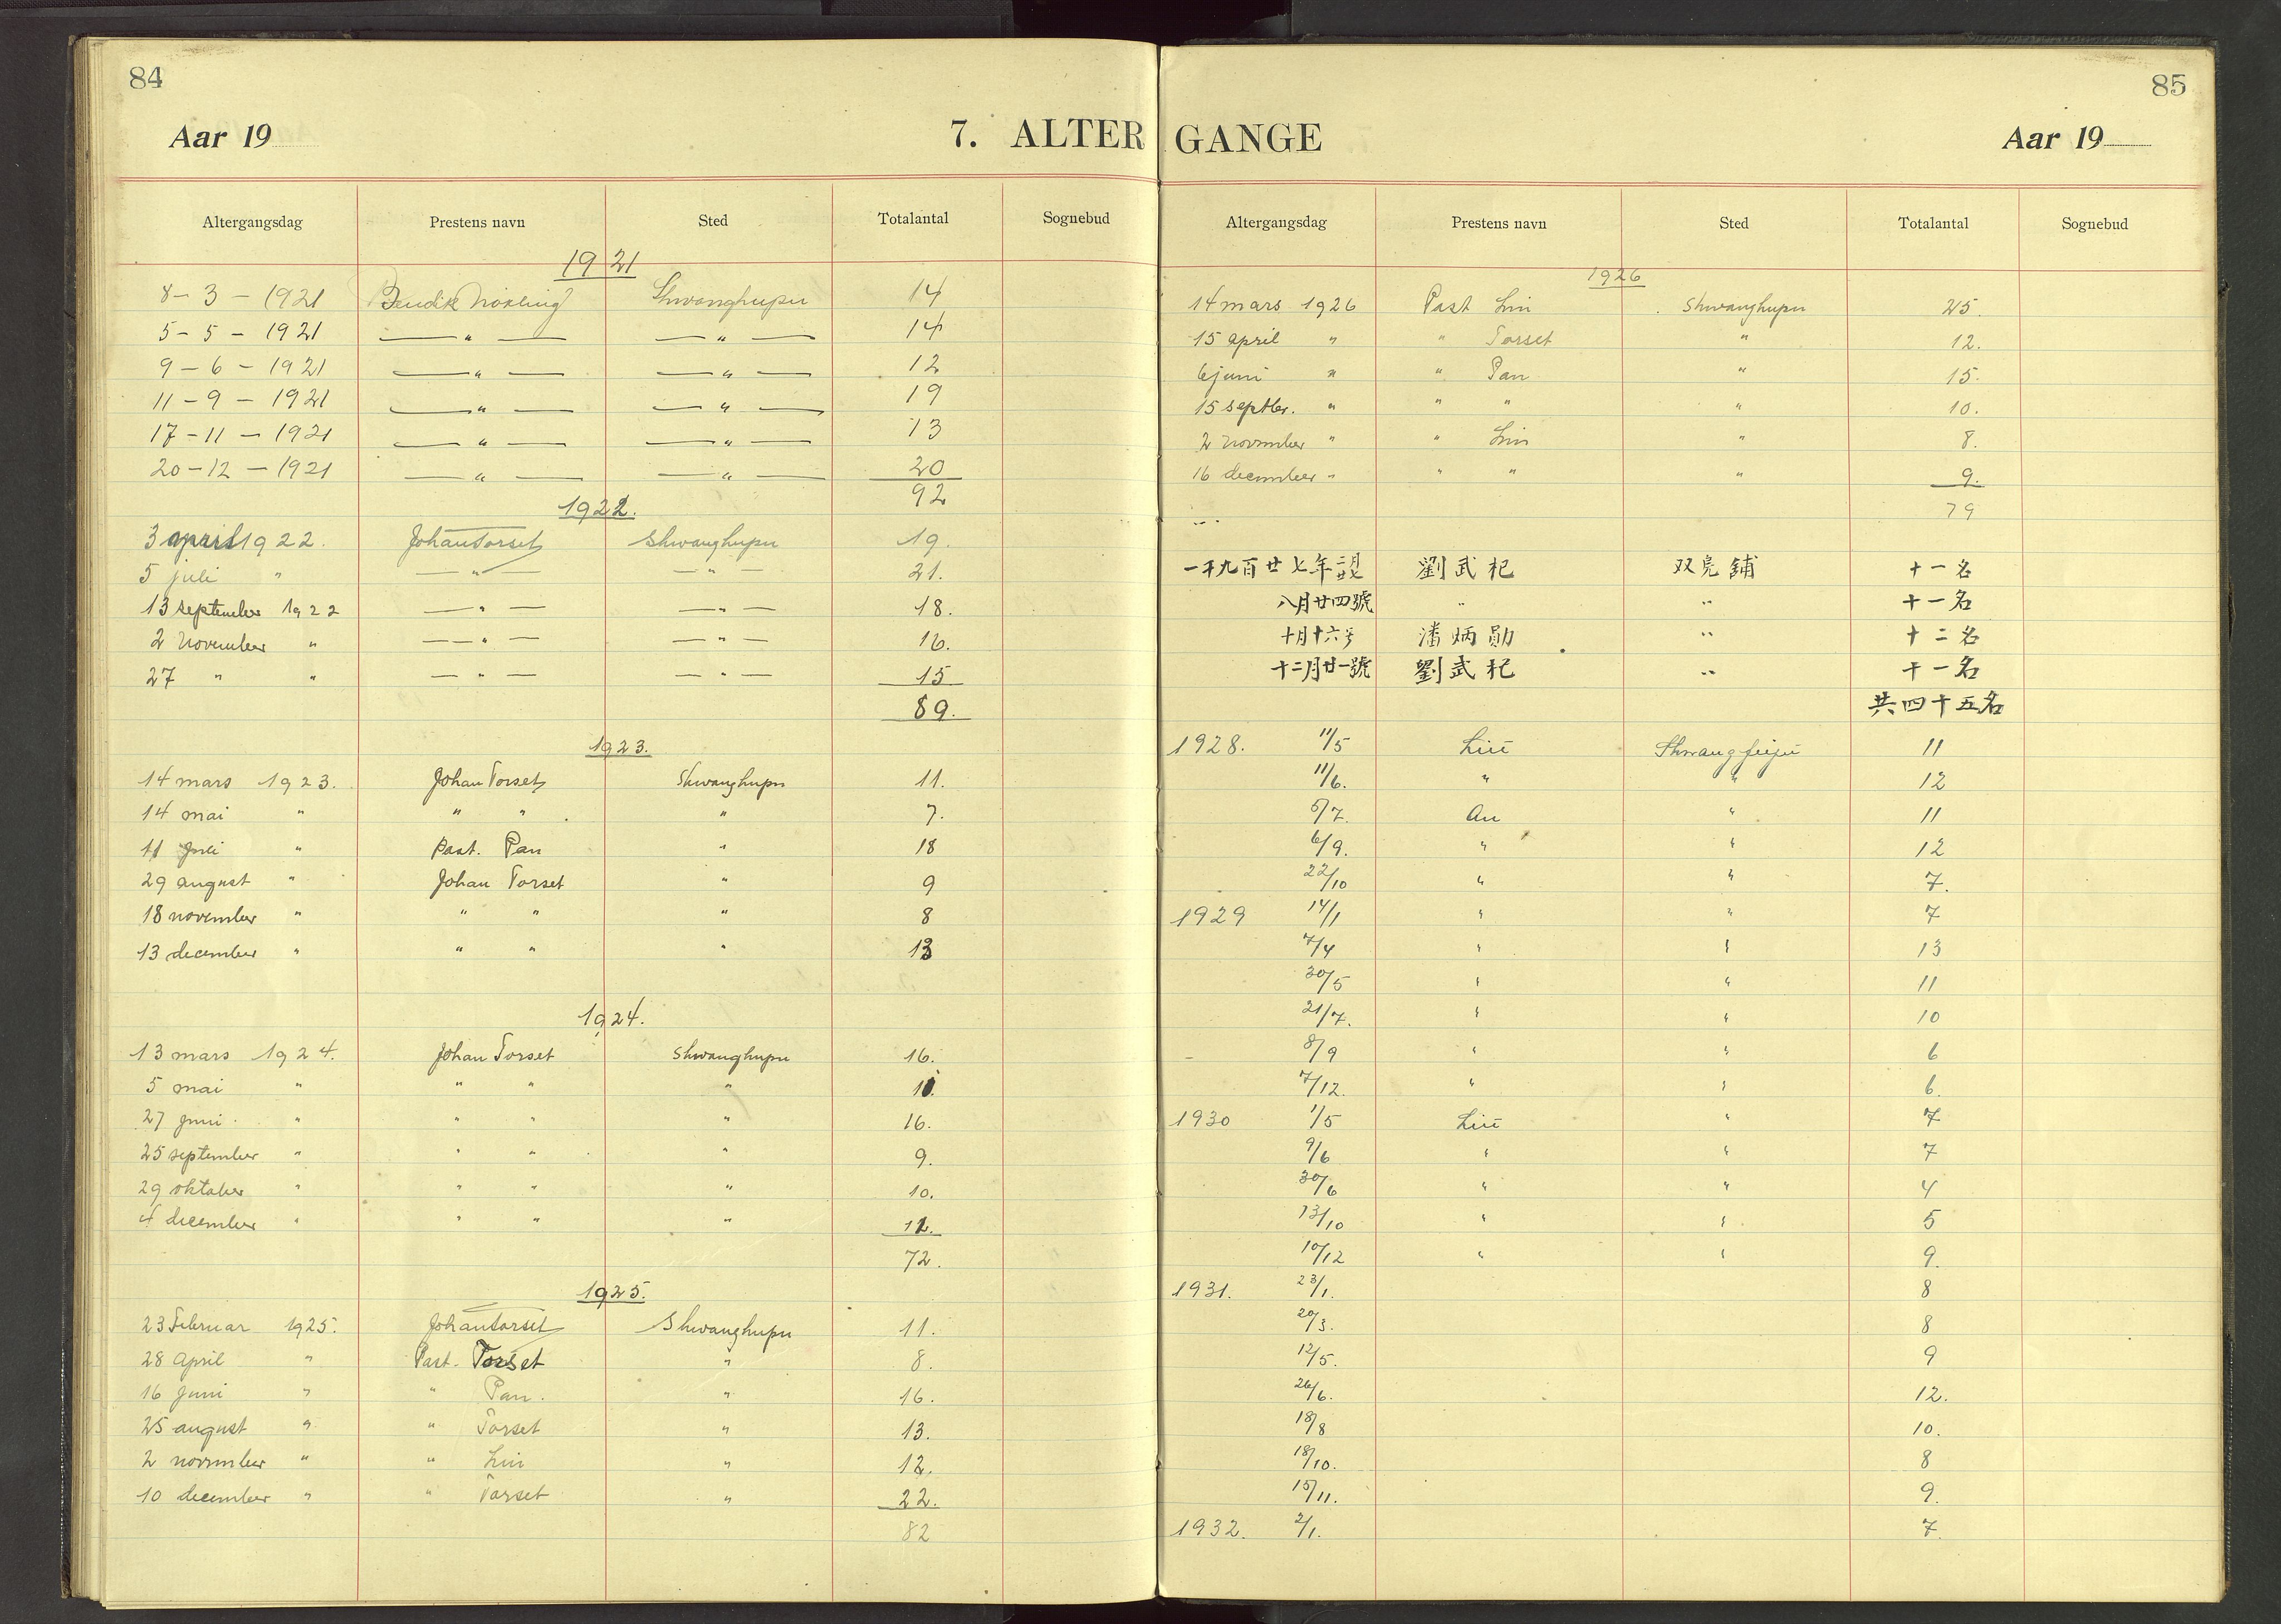 84
Aar 19
7. ALTER
Altergangsdag Prestens navn Sted Totalantal Sognebud
1921
8 - 3 - 1921 Bendik Nökling Shwanghupu 14
5 - 5 - 1921 — " — — " — 14
9 - 6 - 1921 — " — — " — 12
11 - 9 - 1921 — " — — " — 19
17 - 11 - 1921 — " — — " — 13
20 - 12 - 1921 — " — — " — 20
92
1922.
3 april 1922. Johan Torset Shwanghupu 19.
5 juli " — " — — " — 21.
13 september 1922 — " — — " — 18.
2 November " — " — — " — 16.
27 " " — " — — " — 15
89.
1923.
14 mars 1923. Johan Torset Shwanghupu 11.
14 mai " " " " 7.
11 juli " Past. Pan " 18
29 august " Johan Torset " 9
18 november " " " " 8
13 december " " " " 13
1924.
13 mars 1924. Johan Torset Shwanghupu 16.
5 mai " " " "
27 juni " " " " 16.
25 september " " " " 9.
29 oktober " " " " 10.
4 december " " " "
72.
1925.
23 Februar 1925. Johan Torset Shwanghupu 11.
28 April " Past. Torset " 8.
16 juni " " Pan. " 16.
25 august " " Torset " 13.
2 november " " Liu " 12.
10 december " " Torset " 22.
82
85
GANGE
Aar 19
Altergangsdag Prestens navn Sted Totalantal Sognebud
1926
14 mars 1926 Past Liu Shwanghupu 25.
15 april " " Torset " 12.
6 juni " " Pan " 15.
15 septbr. " " " " 10.
2 November " " Liu " 8.
16 december " " " " 9.
79
一千九百廿七年二月廿七 劉武杞 双凫舖 十一名
八月廿四號 " " 十一名
十月十六号 潘炳勛 " 十二名
十二月廿一號 劉武杞 " 十一名
共四十五名
1928. 11/5 Liu 11
11/6. " " 12
5/7. An " 11
6/9. " " 12
22/10 " " 7.
1929 14/1 " " 7
7/4 " " 13
30/5 " " 11
21/7. " " 10
8/9 " " 6
7/12. " " 6.
1930 1/5 Liu " 7
9/6 " " 7
30/6 " " 4
13/10 " " 5
10/12 " " 9.
1931. 23/1. 8
20/3. 8
12/5. 9
26/6. 12.
18/8 10.
18/10. 8
15/11. 9.
1932. 2/1. 7.